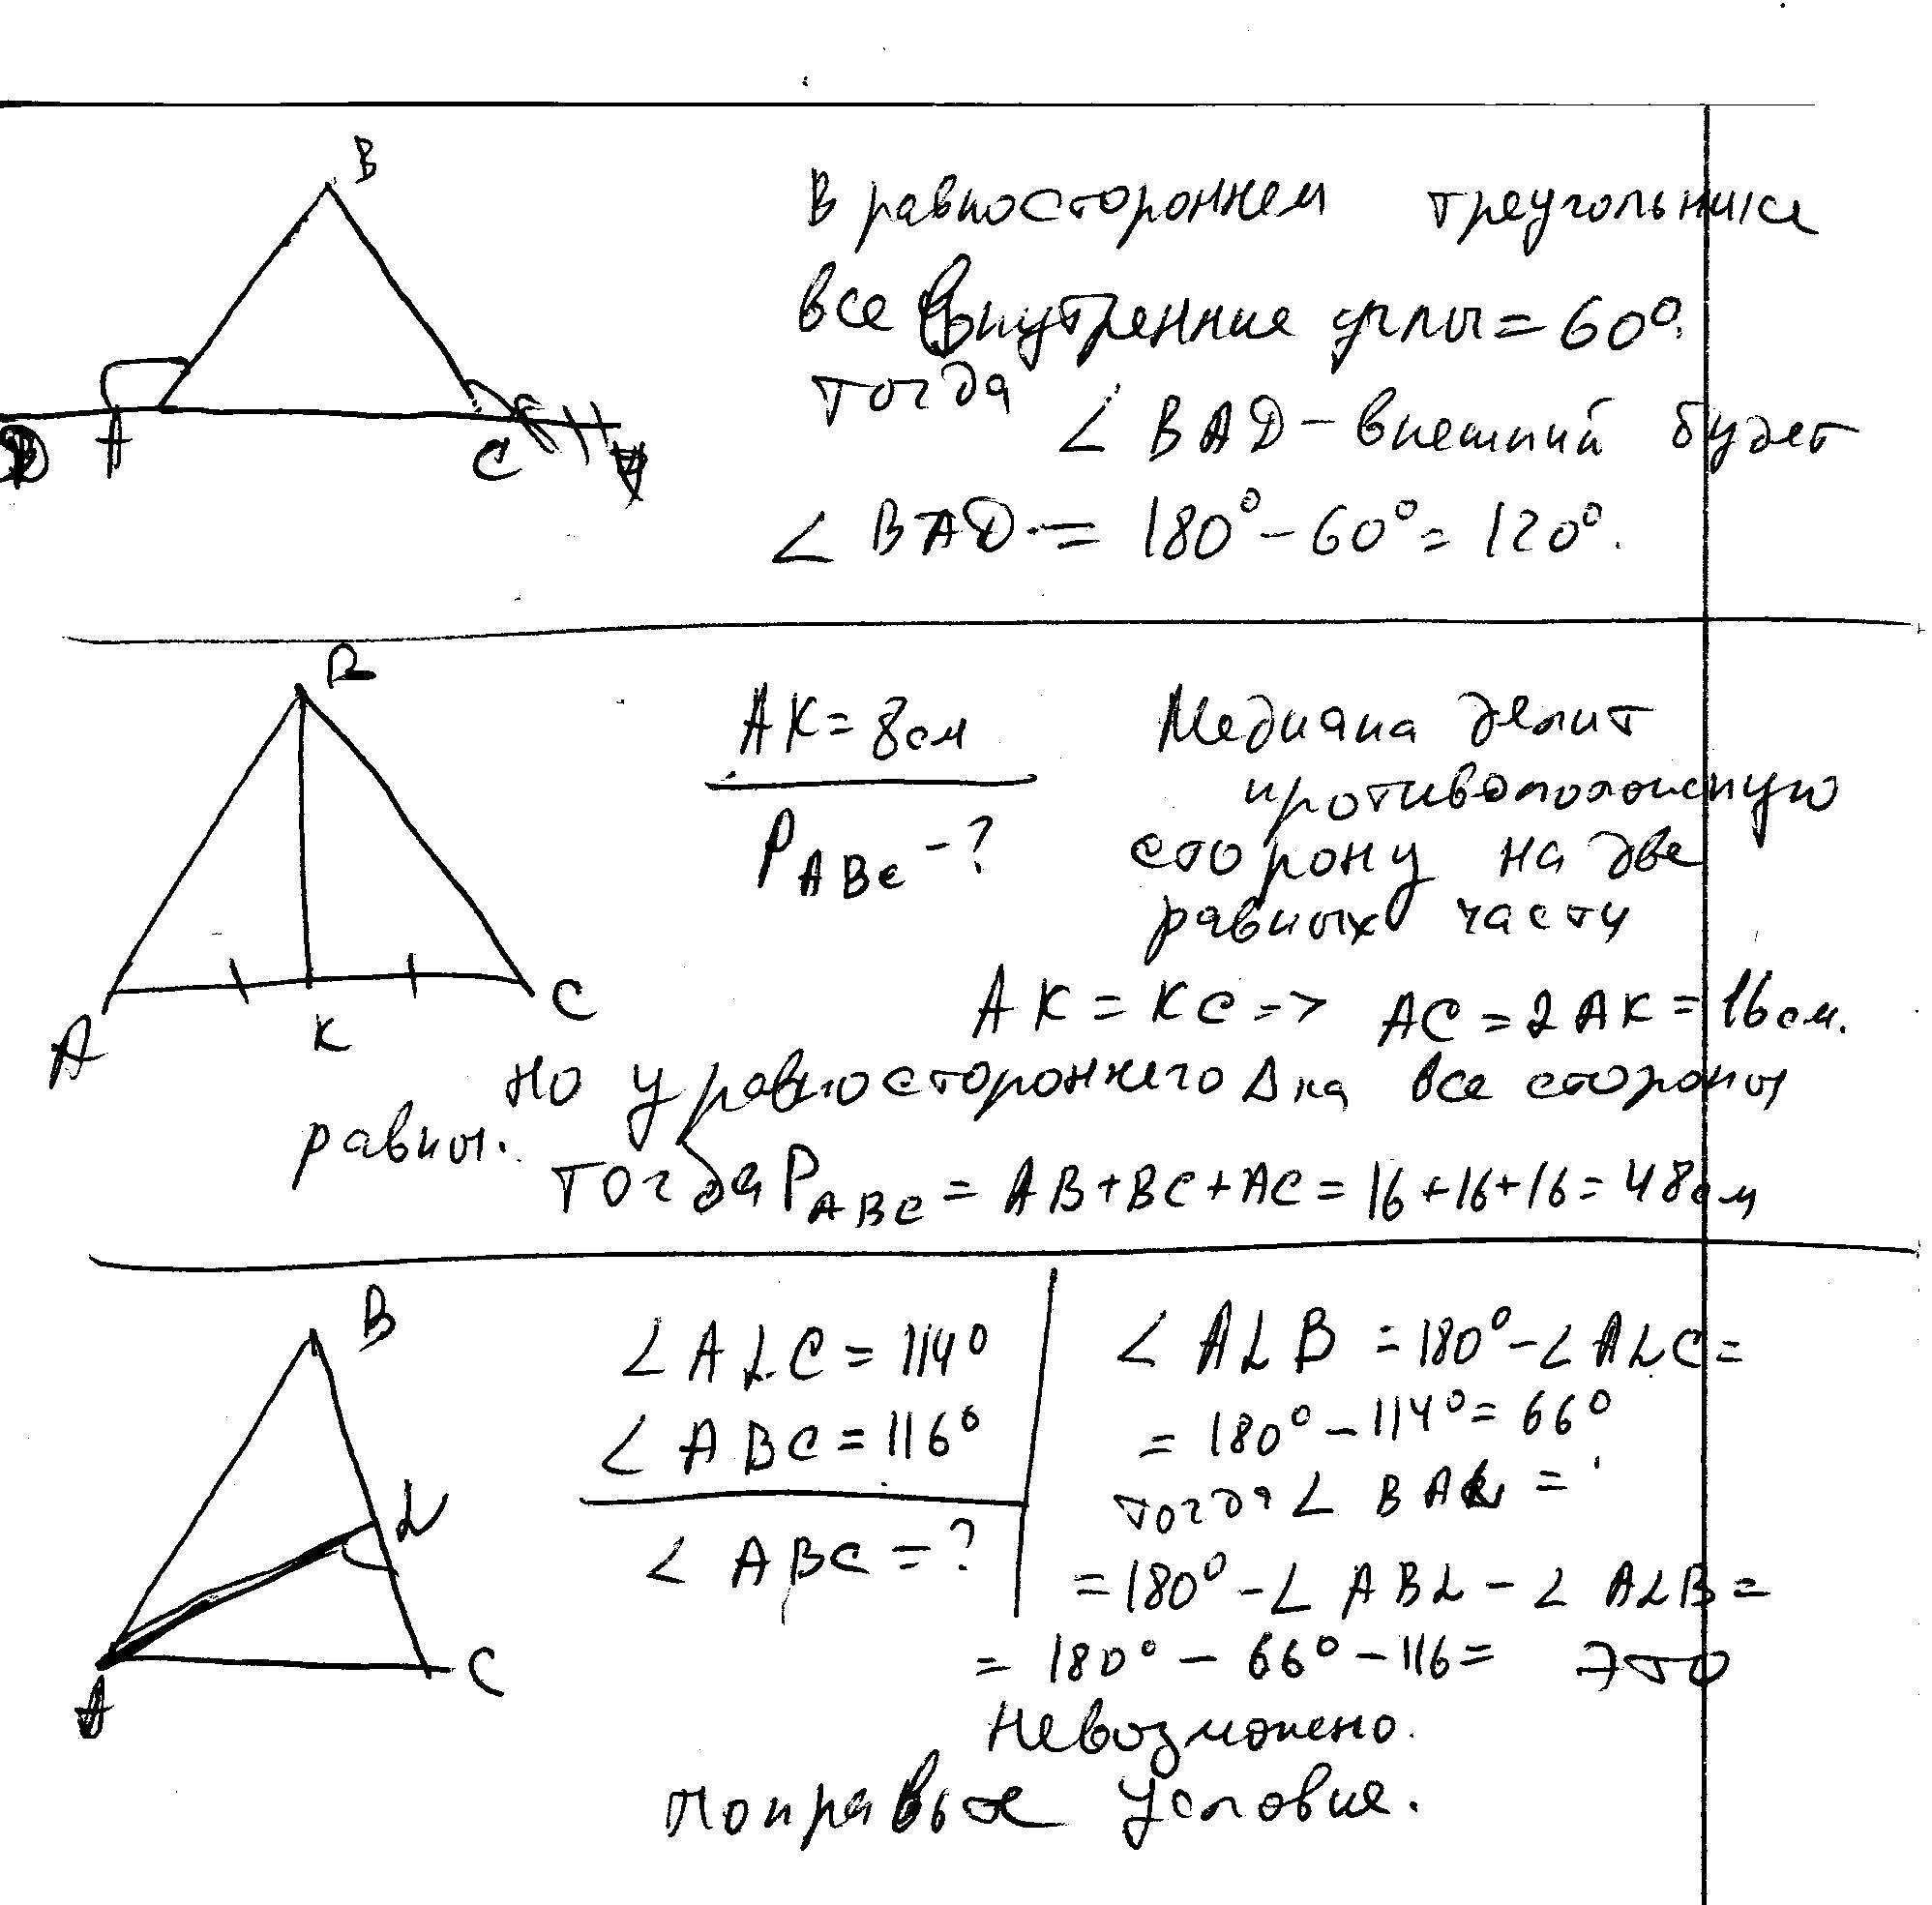 B
D A C
В равностороннем треугольнике
все внутренние углы = 60°.
тогда
∠ BAD – внешний будет
∠ BAD = 180° – 60° = 120°.
B
A K C
AK = 8 см
P ABC – ?
Медиана делит
противоположную
сторону на две
равных части
AK = KC => AC = 2 AK = 16 см.
Но у равностороннего Δ ка все стороны
равны.
Тогда P ABC = AB + BC + AC = 16 + 16 + 16 = 48 см
B
L
A C
∠ ALC = 114°
∠ ABC = 116°
∠ ABC = ?
∠ ALB = 180° – ∠ ALC =
= 180° – 114° = 66°
тогда ∠ BAL =
= 180° – ∠ ABL – ∠ ALB =
= 180° – 66° – 116 = Это
невозможено.
Поправьте условие.